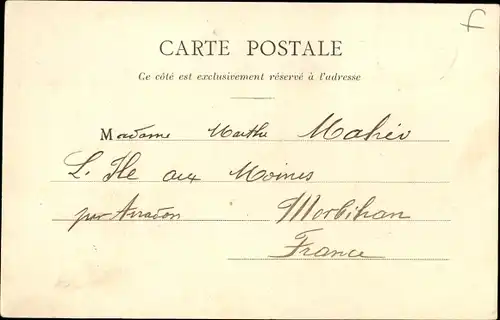 CARTE POSTALE
Ce côté est exclusivement réservé à l'adresse
Madame Marthe Mahéo
L. Ile aux Moines
par Arradon Morbihan
France